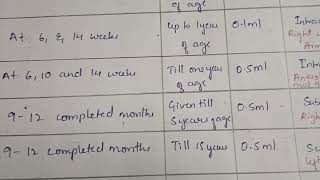 of age
At 6, & 14 weeks
Up to 1year of age
0.1ml
Intra
Right
Arm
At 6, 10 and 14 weeks
Till one year of age
0.5ml
Int
Antero
mid t
9-12 completed months
Given till 5 years of age
0.5ml
Sub
Righ
9-12 completed months
Till 15 years
0.5ml
Su
left